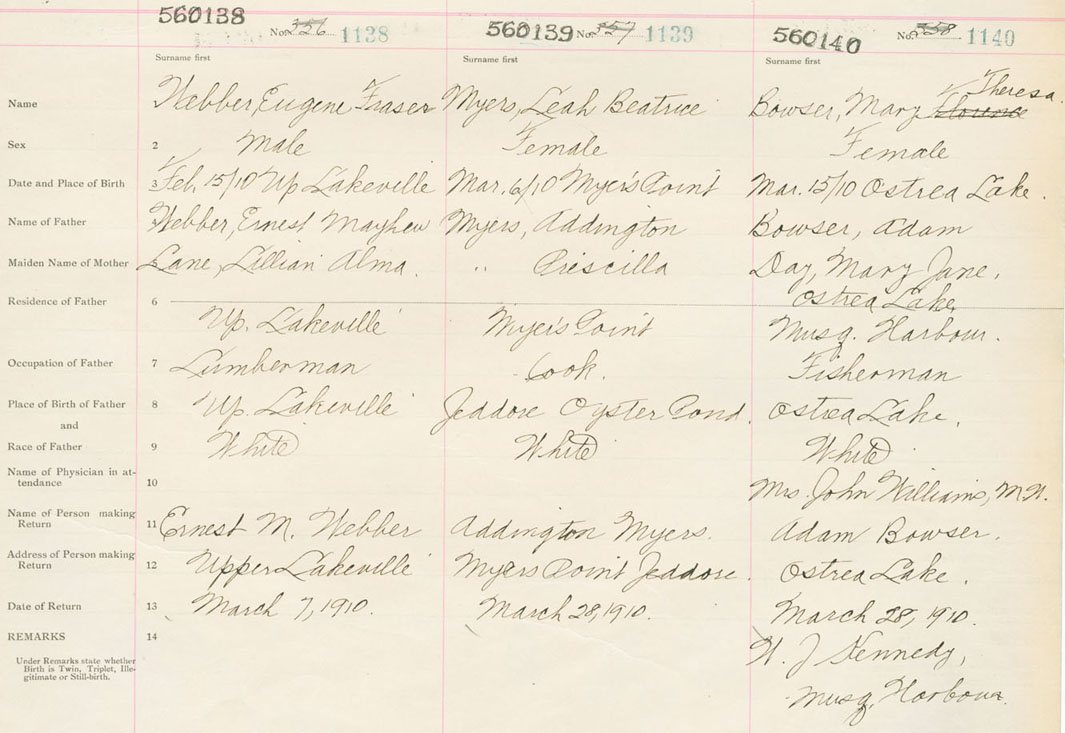 560138 No. 356 1138 560139 No. 357 1139 560140 No. 358 1140
Surname first Surname first Surname first
Name Webber, Eugene Fraser Myers, Leah Beatrice Bowser, Mary Florence Theresa.
Sex 2 Male Female Female
Date and Place of Birth 3 Feb. 15/10 Up Lakeville Mar. 6/10 Myer's Point Mar. 15/10 Ostrea Lake.
Name of Father 4 Webber, Ernest Mayhew Myers, Addington Bowser, Adam
Maiden Name of Mother 5 Lane, Lillian Alma. " Priscilla Day, Mary Jane.
Residence of Father 6 Ostrea Lake,
Up. Lakeville Myer's Point Musq. Harbour.
Occupation of Father 7 Lumberman Cook. Fisherman
Place of Birth of Father 8 Up. Lakeville Jeddore Oyster Pond. Ostrea Lake.
and
Race of Father 9 White White White
Name of Physician in at-
tendance 10 Mrs. John Williams, M.W.
Name of Person making
Return 11 Ernest M. Webber Addington Myers. Adam Bowser.
Address of Person making
Return 12 Upper Lakeville Myers Point Jeddore. Ostrea Lake.
Date of Return 13 March 7, 1910. March 28, 1910. March 28, 1910.
REMARKS 14
Under Remarks state whether
Birth is Twin, Triplet, Ille-
gitimate or Still-birth.
W. J Kennedy,
Musq. Harbour.